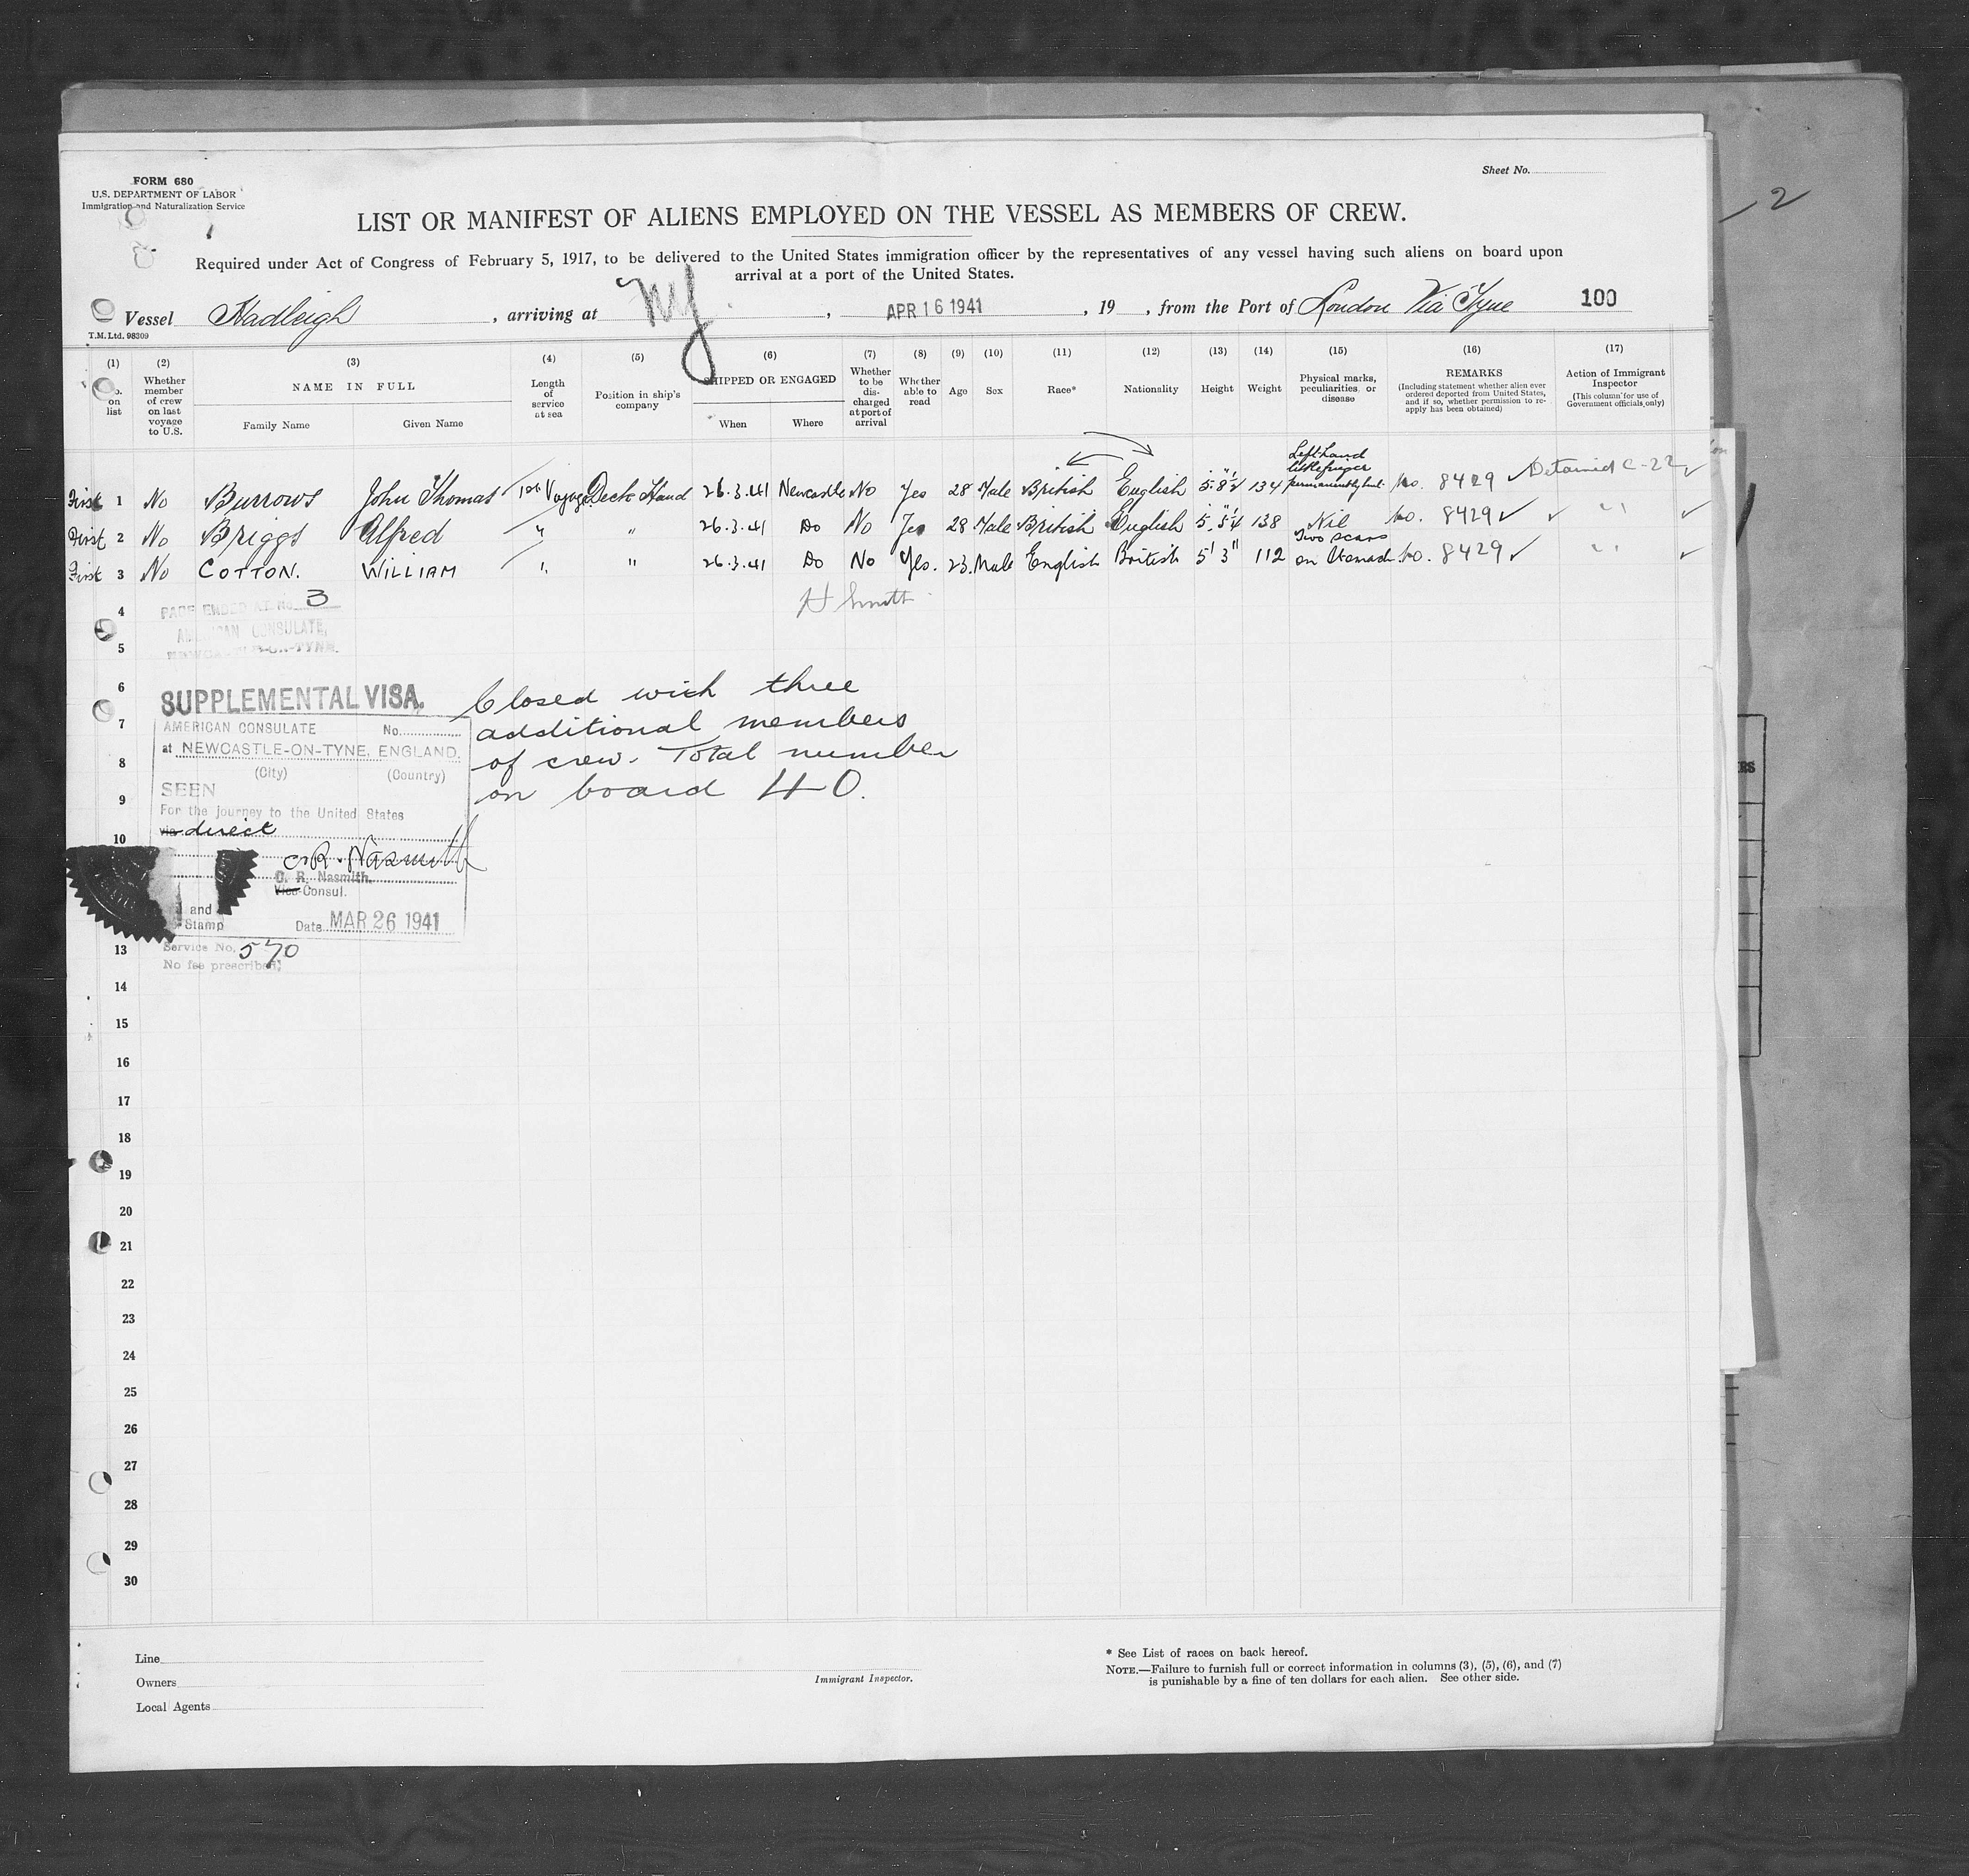 FORM 680
U.S. DEPARTMENT OF LABOR
Immigration and Naturalization Service
Sheet No.
2
LIST OR MANIFEST OF ALIENS EMPLOYED ON THE VESSEL AS MEMBERS OF CREW.
Required under Act of Congress of February 5, 1917, to be delivered to the United States immigration officer by the representatives of any vessel having such aliens on board upon
arrival at a port of the United States.
Vessel Hadleigh , arriving at NY , APR 16 1941 , 19 , from the Port of London Via Tyne 100
T.M. Ltd. 98309
(1) (2) (3) (4) (5) (6) (7) (8) (9) (10) (11) (12) (13) (14) (15) (16) (17)
No. on list
Whether member of crew on last voyage to U.S.
NAME IN FULL
Family Name Given Name
Length of service at sea
Position in ship's company
SHIPPED OR ENGAGED
When Where
Whether to be discharged at port of arrival
Whether able to read
Age Sex Race* Nationality Height Weight
Physical marks, peculiarities, or disease
REMARKS
(Including statement whether alien ever ordered deported from United States, and if so, whether permission to reapply has been obtained)
Action of Immigrant Inspector
(This column for use of Government officials only)
First 1 No Burrows John Thomas 1st Voyage Deck Hand 26.3.41 Newcastle No Yes 28 Male British English 5.8½ 134 Left hand little finger permanently bent. No. 8429 ✓ Detained C-22 ✓
First 2 No Briggs Alfred " " 26.3.41 Do No Yes 28 Male British English 5.5¼ 138 Nil No. 8429 ✓ ✓ " ✓
First 3 No COTTON. WILLIAM " " 26.3.41 Do No Yes. 23. Male English British 5' 3" 112 Two scars on Stomach. No. 8429 ✓ " ✓
4 PAGE ENDED AT No. 3
H Smith
AMERICAN CONSULATE,
5 NEWCASTLE-ON-TYNE.
6
SUPPLEMENTAL VISA.
7 AMERICAN CONSULATE No.
at NEWCASTLE-ON-TYNE, ENGLAND.
8 (City) (Country)
9 SEEN
For the journey to the United States
10 via direct
C R Nasmith
C. R. Nasmith.
Vice-Consul.
and
Stamp
Date MAR 26 1941
13 Service No. 570
No fee prescribed.
Closed with three
additional members
of crew. Total number
on board 40.
14
15
16
17
18
19
20
21
22
23
24
25
26
27
28
29
30
Line
Owners
Local Agents
Immigrant Inspector.
* See List of races on back hereof.
NOTE.—Failure to furnish full or correct information in columns (3), (5), (6), and (7)
is punishable by a fine of ten dollars for each alien. See other side.